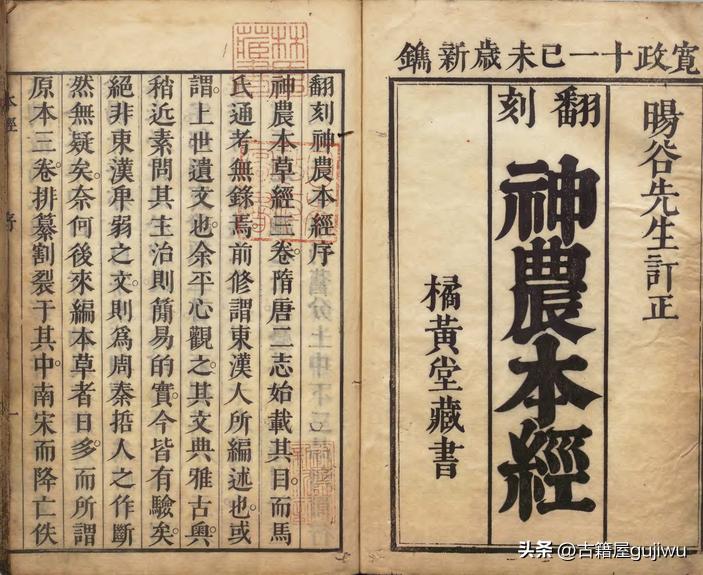 寛政十一己未歳新鐫
暘谷先生訂正
翻刻
神農本經
橘黃堂藏書
翻刻神農本經序
神農本草經三卷。隋唐二志始載其目。而馬
氏通考無錄焉。前修謂東漢人所編述也。或
謂。上世遺文也。余平心觀之。其文典雅古奧
稍近素問。其主治則簡易的實。今皆有驗矣。
絕非東漢卑弱之文。則爲周秦哲人之作斷
然無疑矣。奈何後來編本草者日多。而所謂
原本三卷。排纂割裂于其中。南宋而降亡佚
本經
序
一
头条 @古籍屋gujiwu